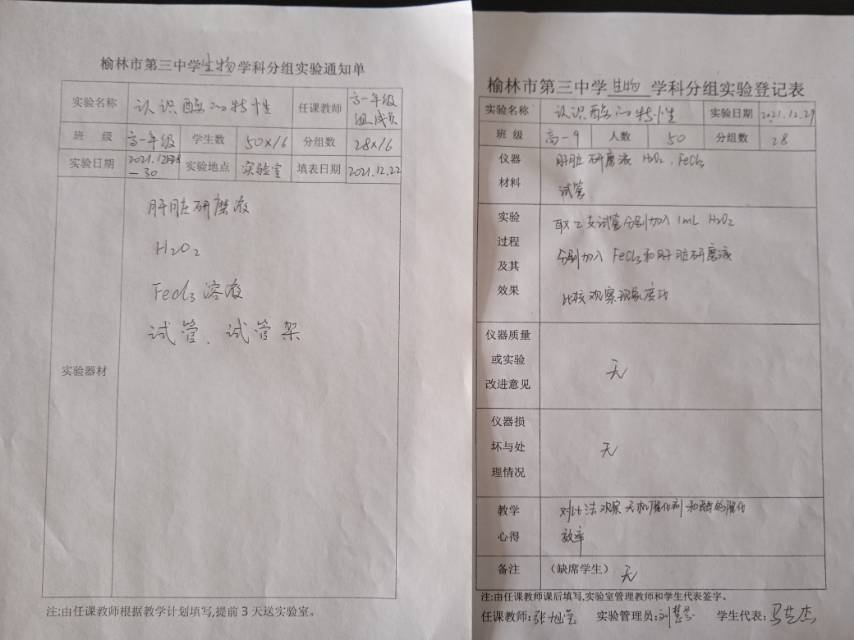 榆林市第三中学生物学科分组实验通知单
实验名称 认识酶的特性 任课教师 高一年级组成员
班 级 高一年级 学生数 50×16 分组数 28×16
实验日期 2021.12月28—30 实验地点 实验室 填表日期 2021.12.22
实验器材
肝脏研磨液
H2O2
FeCl3溶液
试管、试管架
注:由任课教师根据教学计划填写,提前 3 天送实验室。
榆林市第三中学 生物 学科分组实验登记表
实验名称 认识酶的特性 实验日期 2021.12.29
班 级 高一9 人数 50 分组数 28
仪器材料 肝脏研磨液 H2O2、FeCl3
试管
实验过程及其效果
取2支试管分别加入1mL H2O2
分别加入FeCl3和肝脏研磨液
比较观察现象
仪器质量或实验改进意见 无
仪器损坏与处理情况 无
教学心得 对比法观察无机催化剂和酶的催化
效率
备注 (缺席学生) 无
注:由任课教师课后填写,实验室管理教师和学生代表签字。
任课教师:张旭莹 实验管理员:刘慧 学生代表:马艺杰